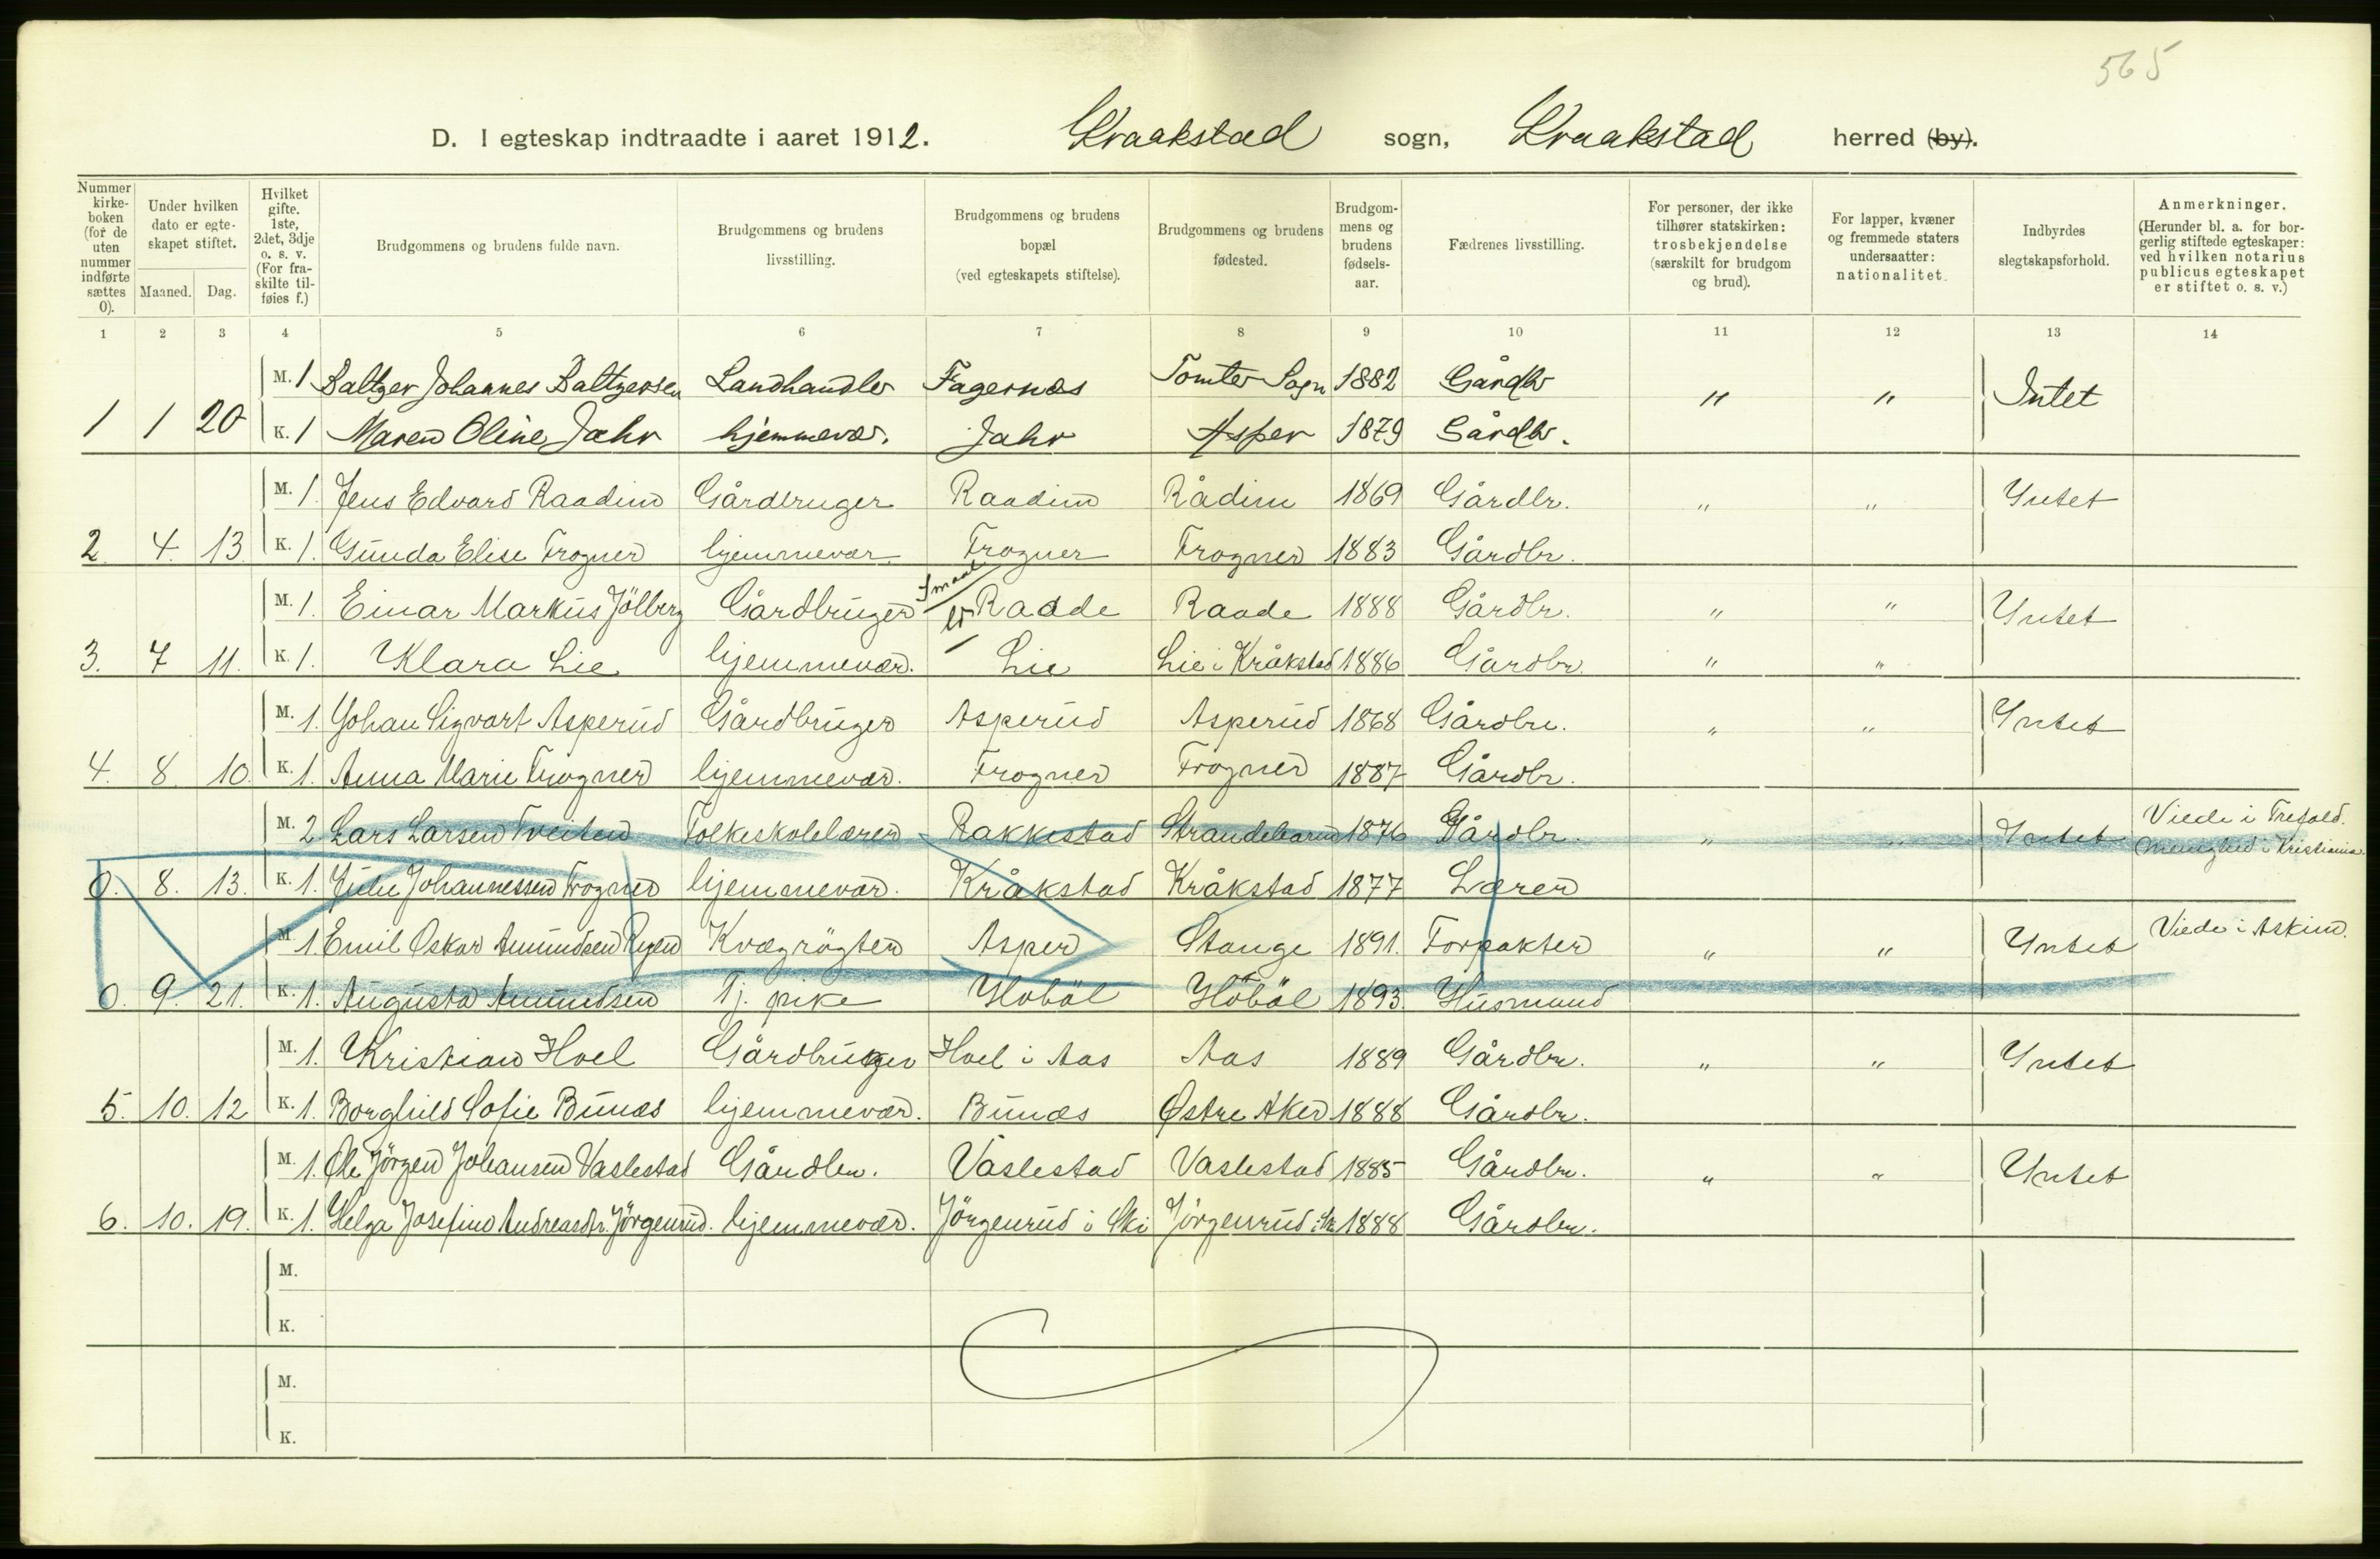 565
D. I egteskap indtraadte i aaret 1912. Kraakstad sogn, Kraakstad herred (by).
Nummer kirkeboken (for de uten nummer indførte sættes 0). Under hvilken dato er egteskapet stiftet. Maaned. Dag. Hvilket gifte. 1ste, 2det, 3dje o. s. v. (For fraskilte tilføies f.) Brudgommens og brudens fulde navn. Brudgommens og brudens livsstilling. Brudgommens og brudens bopæl (ved egteskapets stiftelse). Brudgommens og brudens fødested. Brudgommens og brudens fødselsaar. Fædrenes livsstilling. For personer, der ikke tilhører statskirken: trosbekjendelse (særskilt for brudgom og brud). For lapper, kvæner og fremmede staters undersaatter: nationalitet. Indbyrdes slegtskapsforhold. Anmerkninger. (Herunder bl. a. for borgerlig stiftede egteskaper: ved hvilken notarius publicus egteskapet er stiftet o. s. v.)
1 2 3 4 5 6 7 8 9 10 11 12 13 14
M. 1 Baltzer Johannes Baltzersen Landhandler Fagernæs Tomter Sogn 1882 Gårdbr " " Intet
1 1 20 K. 1 Maren Oline Jahr hjemmevær. Jahr Asper 1879 Gårdbr.
M. 1. Jens Edvard Raadim Gårdbruger Raadim Rådim 1869 Gårdbr. " " Intet
2. 4. 13. K. 1. Gunda Elise Frogner hjemmevær. Frogner Frogner 1883 Gårdbr.
M. 1. Einar Markus Jölberg Gårdbruger Raade Raade 1888 Gårdbr. " " Intet
3. 7 11. K. 1. Klara Lie hjemmevær. Lie Lie i Kråkstad 1886 Gårdbr. " "
M. 1. Johan Sigvart Asperud Gårdbruger Asperud Asperud 1868 Gårdbr. " " Intet
4. 8. 10. K. 1. Anna Marie Frogner hjemmevær. Frogner Frogner 1887 Gårdbr.
M. 2 Lars Larsen Tveiten Folkeskolelærer Rakkestad Strandebarm 1876 Gårdbr. " " Intet Viede i Trefold. menighed i Kristiania.
0. 8. 13. K. 1. Julie Johannessen Frogner hjemmevær. Kråkstad Kråkstad 1877 Lærer
M. 1. Emil Oskar Amundsen Ryen Kvægrögter Asper Stange 1891. Forpakter " " Intet Viede i Askim.
0. 9. 21. K. 1. Augusta Amundsen Tj. pike Hobøl Höböl 1893. Husmand
M. 1. Kristian Hoel Gårdbruger Hoel i Aas Aas 1889 Gårdbr. " " Intet
5. 10. 12 K. 1. Borghild Sofie Bunæs hjemmevær. Bunæs Østre Aker 1888 Gårdbr.
M. 1. Ole Jörgen Johansen Vaslestad Gårdbr. Vaslestad Vaslestad 1885 Gårdbr. " " Intet
6. 10. 19. K. 1. Helga Josefine Andreasdtr. Jörgenrud. hjemmevær. Jörgenrud i Ski Jörgenrud i Ski 1888 Gårdbr.
M.
K.
M.
K.